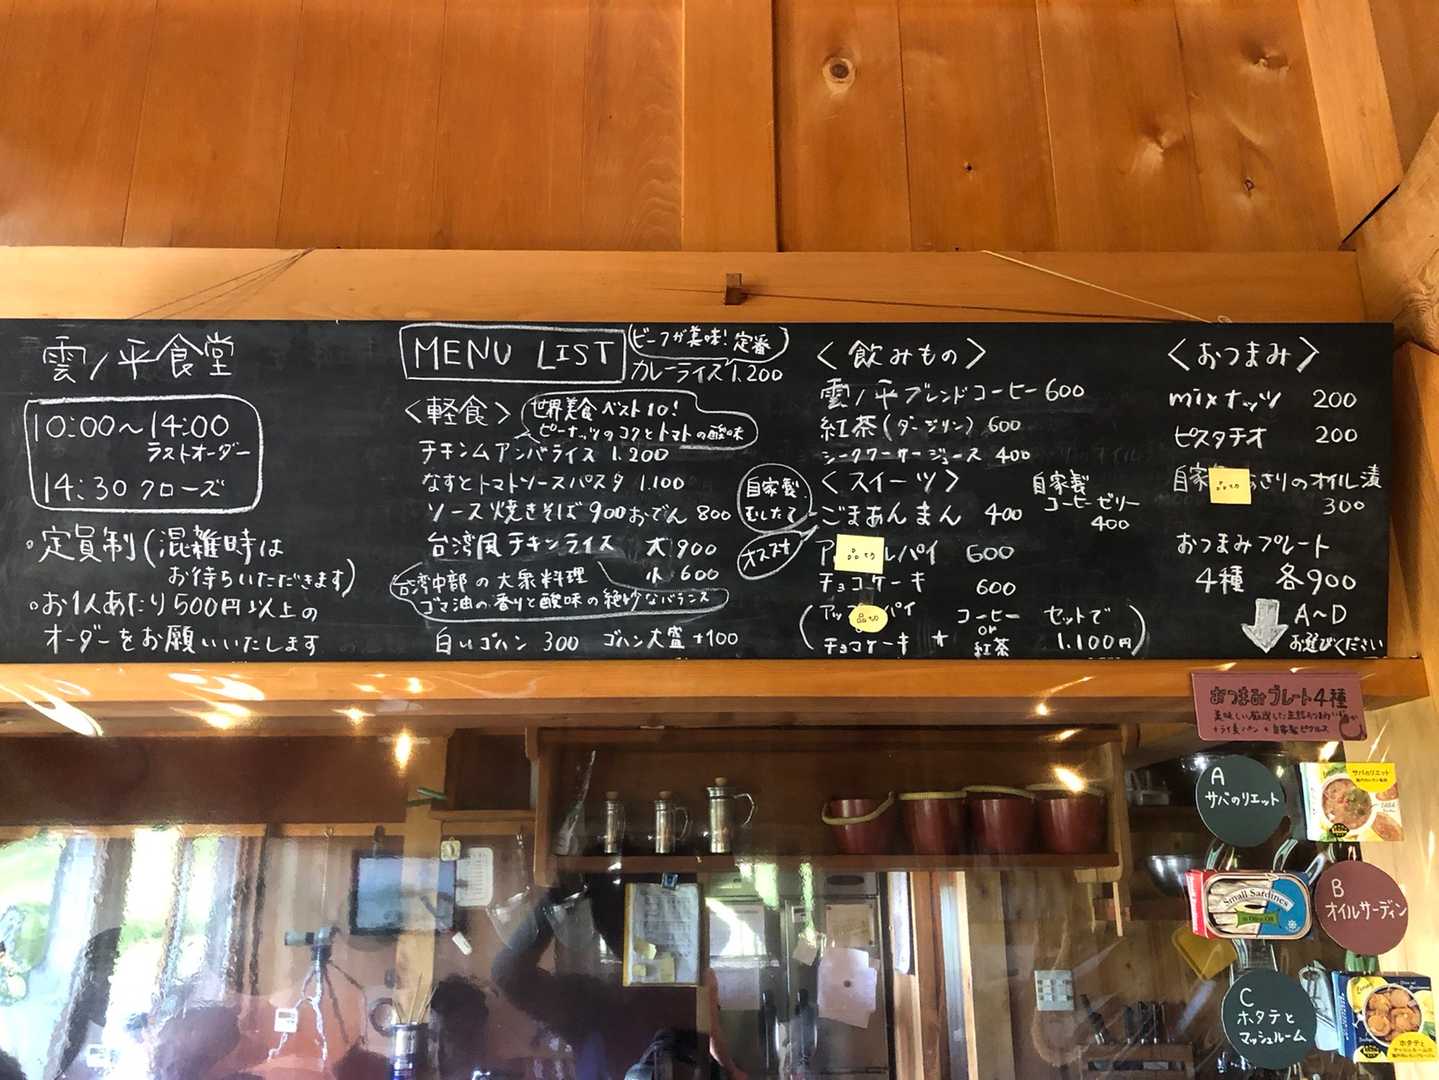 雲ノ平食堂
10:00〜14:00
ラストオーダー
14:30 クローズ
。定員制(混雑時は
お待ちいただきます)
。お1人あたり500円以上の
オーダーをお願いいたします
MENU LIST
ビーフが美味!定番
カレーライス 1,200
〈軽食〉
世界美食ベスト10!
ピーナッツのコクとトマトの酸味
チキンムアンバライス 1,200
なすとトマトソースパスタ 1,100
ソース焼きそば 900 おでん 800
台湾風チキンライス 大 900
小 600
台湾中部の大衆料理
ゴマ油の香りと酸味の絶妙なバランス
白いゴハン 300 ゴハン大盛 +100
〈飲みもの〉
雲ノ平ブレンドコーヒー 600
紅茶(ダージリン) 600
シークワーサージュース 400
〈スイーツ〉
自家製
むしたて
ごまあんまん 400
オススメ
自家製
コーヒーゼリー
400
ア 品切 ルパイ 600
チョコケーキ 600
アップ 品切 パイ
チョコケーキ
コーヒー
or
紅茶
セットで
1,100円
〈おつまみ〉
mixナッツ 200
ピスタチオ 200
自家 品切 あさりのオイル漬
300
おつまみプレート
4種 各900
A〜D
お選びください
おつまみプレート4種
A
サバのリエット
サバのリエット
Small Sardines
in Olive Oil
B
オイルサーディン
C
ホタテと
マッシュルーム
ホタテと